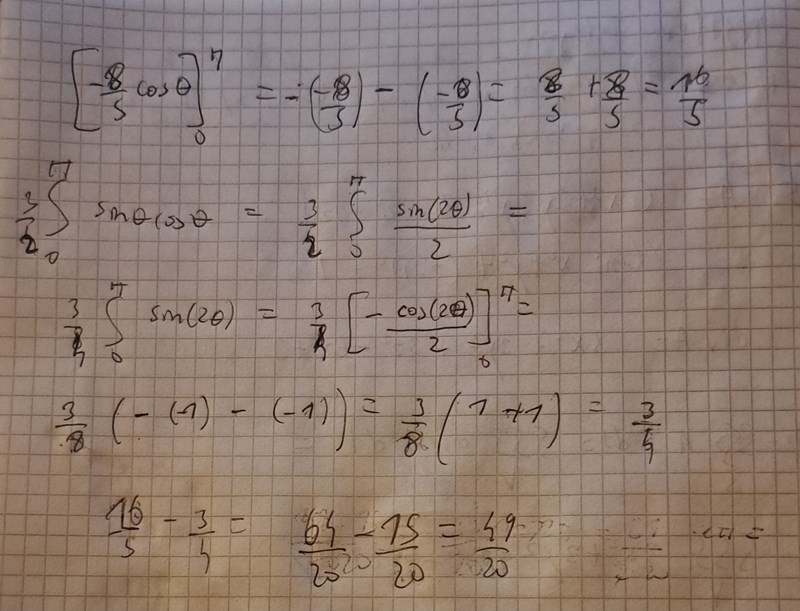 [-8/5 cosθ]₀^π = -(-8/5) - (-8/5) = 8/5 + 8/5 = 16/5
3/2 ∫₀^π sinθcosθ = 3/2 ∫₀^π sin(2θ)/2 =
3/4 ∫₀^π sin(2θ) = 3/4 [- cos(2θ)/2]₀^π =
3/8 (- (-1) - (-1)) = 3/8 (1 + 1) = 3/4
16/5 - 3/4 = 64/20 - 15/20 = 49/20